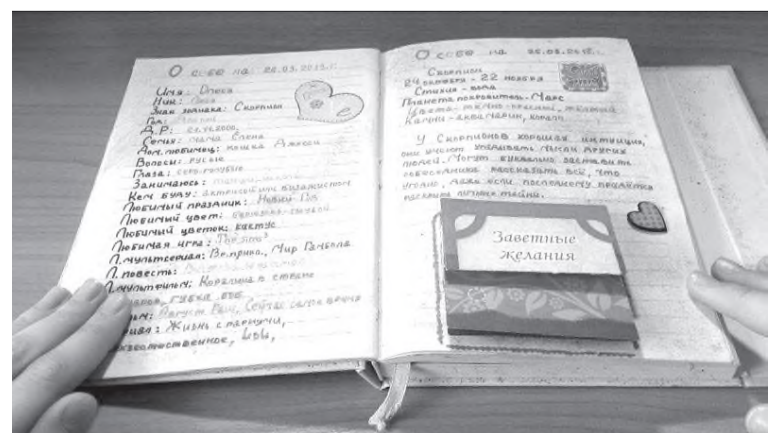 О себе на: 26.03.2015.г.
Имя: Олеся
Ник:
Знак зодиака: Скорпион
Год:
Д.Р:
Семья: мама Елена
Дом. любимец: кошка Джесси
Волосы: русые
Глаза: серо-голубые
Занимаюсь:
Кем буду: актрисой или визажистом
Любимый праздник: Новый Год
Любимый цвет:
Любимый цветок: кактус
Любимая игра:
Л. мультсериал: Вр. прикл., Мир Гамбола
Л. повесть:
Л. мультфильм: Коралина в стране
губка боб
Август Раш, Сейчас самое время
Жизнь с
О себе на 26.03.2015.г.
Скорпион
24 октября - 22 ноября
Стихия - вода
Планета покровитель - Марс
Цвета - темно-красный, жёлтый
Камни - аквамарин, коралл
У Скорпионов хорошая интуиция,
они умеют угадывать мысли других
людей. Могут буквально заставить
собеседника рассказать всё, что
угодно, даже если последнему придётся
раскрыть личные тайны.
Заветные
желания